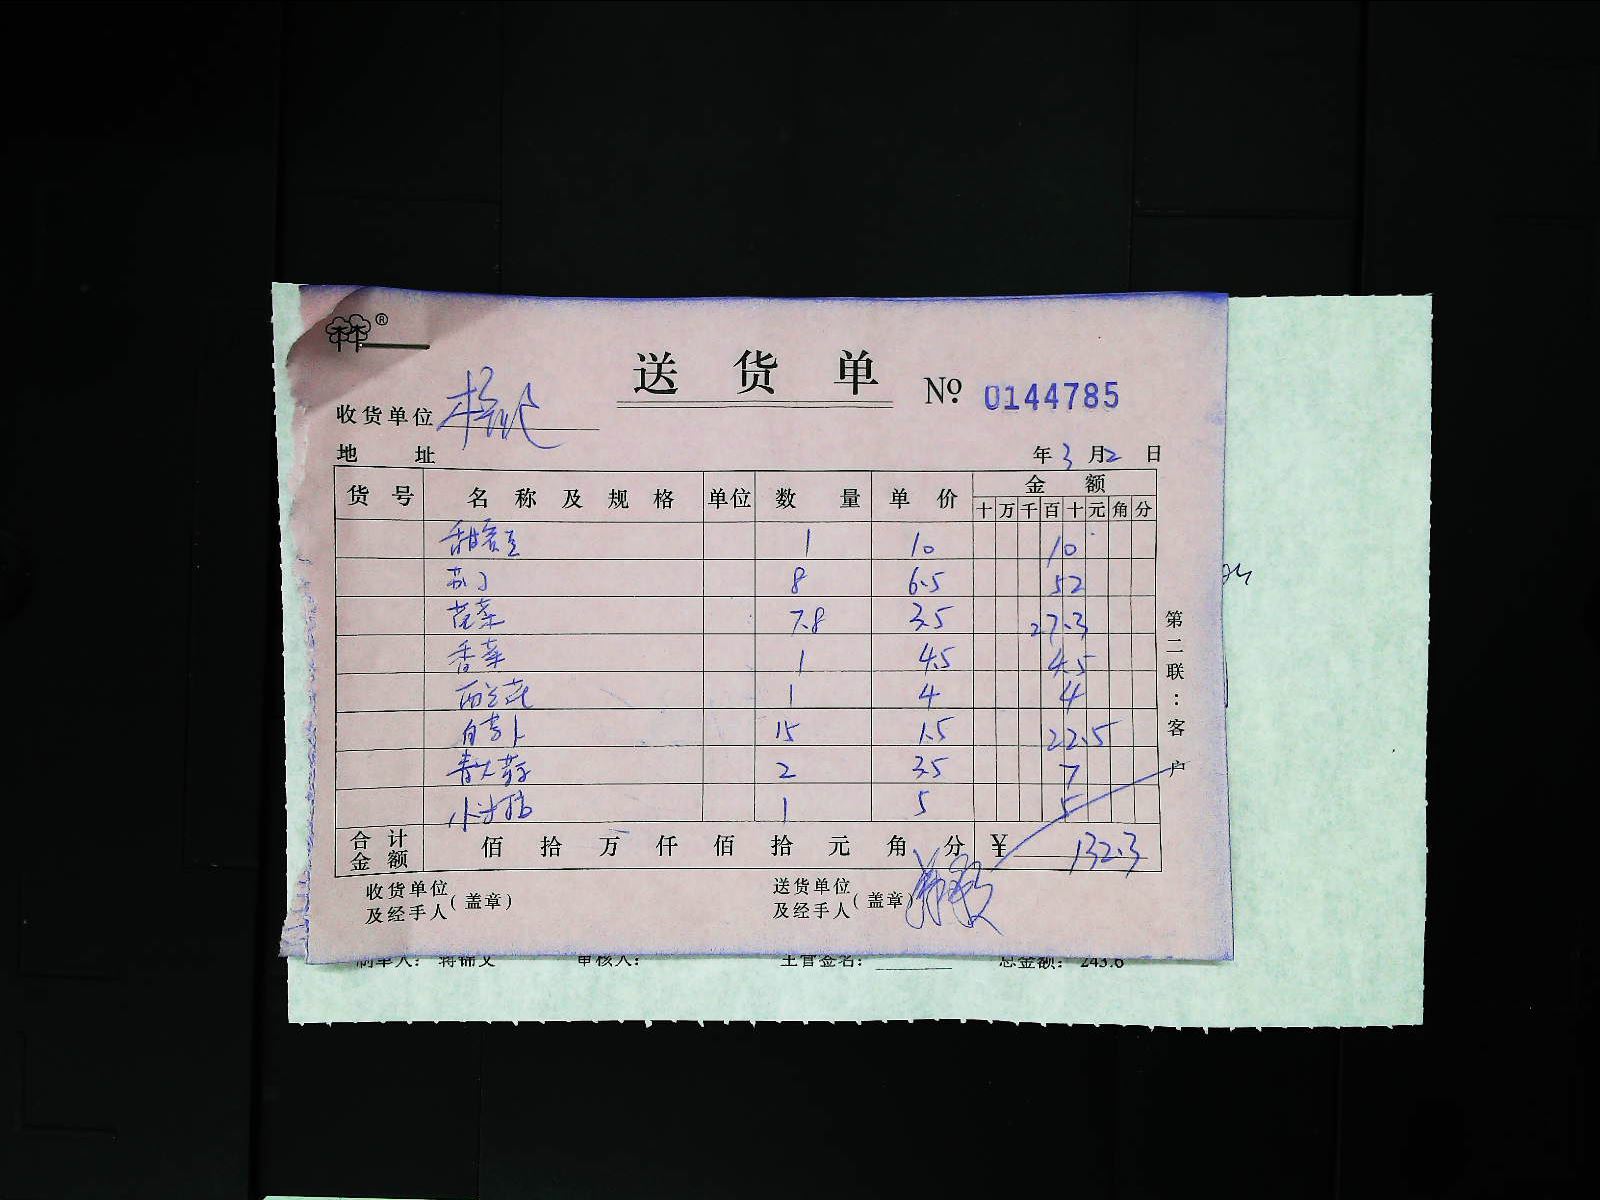 ®
送货单 № 0144785
收货单位
地址 年3月2日
货号 名称及规格 单位 数量 单价 金额
十万千百十元角分
甜蜜豆 1 10 10
8 6.5 52
7.8 3.5 27.3
香菜 1 4.5 4.5
西兰花 1 4 4
白萝卜 15 1.5 22.5
2 3.5 7
小米椒 1 5 5
合计金额 佰拾万仟佰拾元角分 ¥ 132.3
收货单位及经手人(盖章) 送货单位及经手人(盖章)
第二联:客户
制单人: 蒋锦文 审核人: 主管签名: 总金额: 243.6